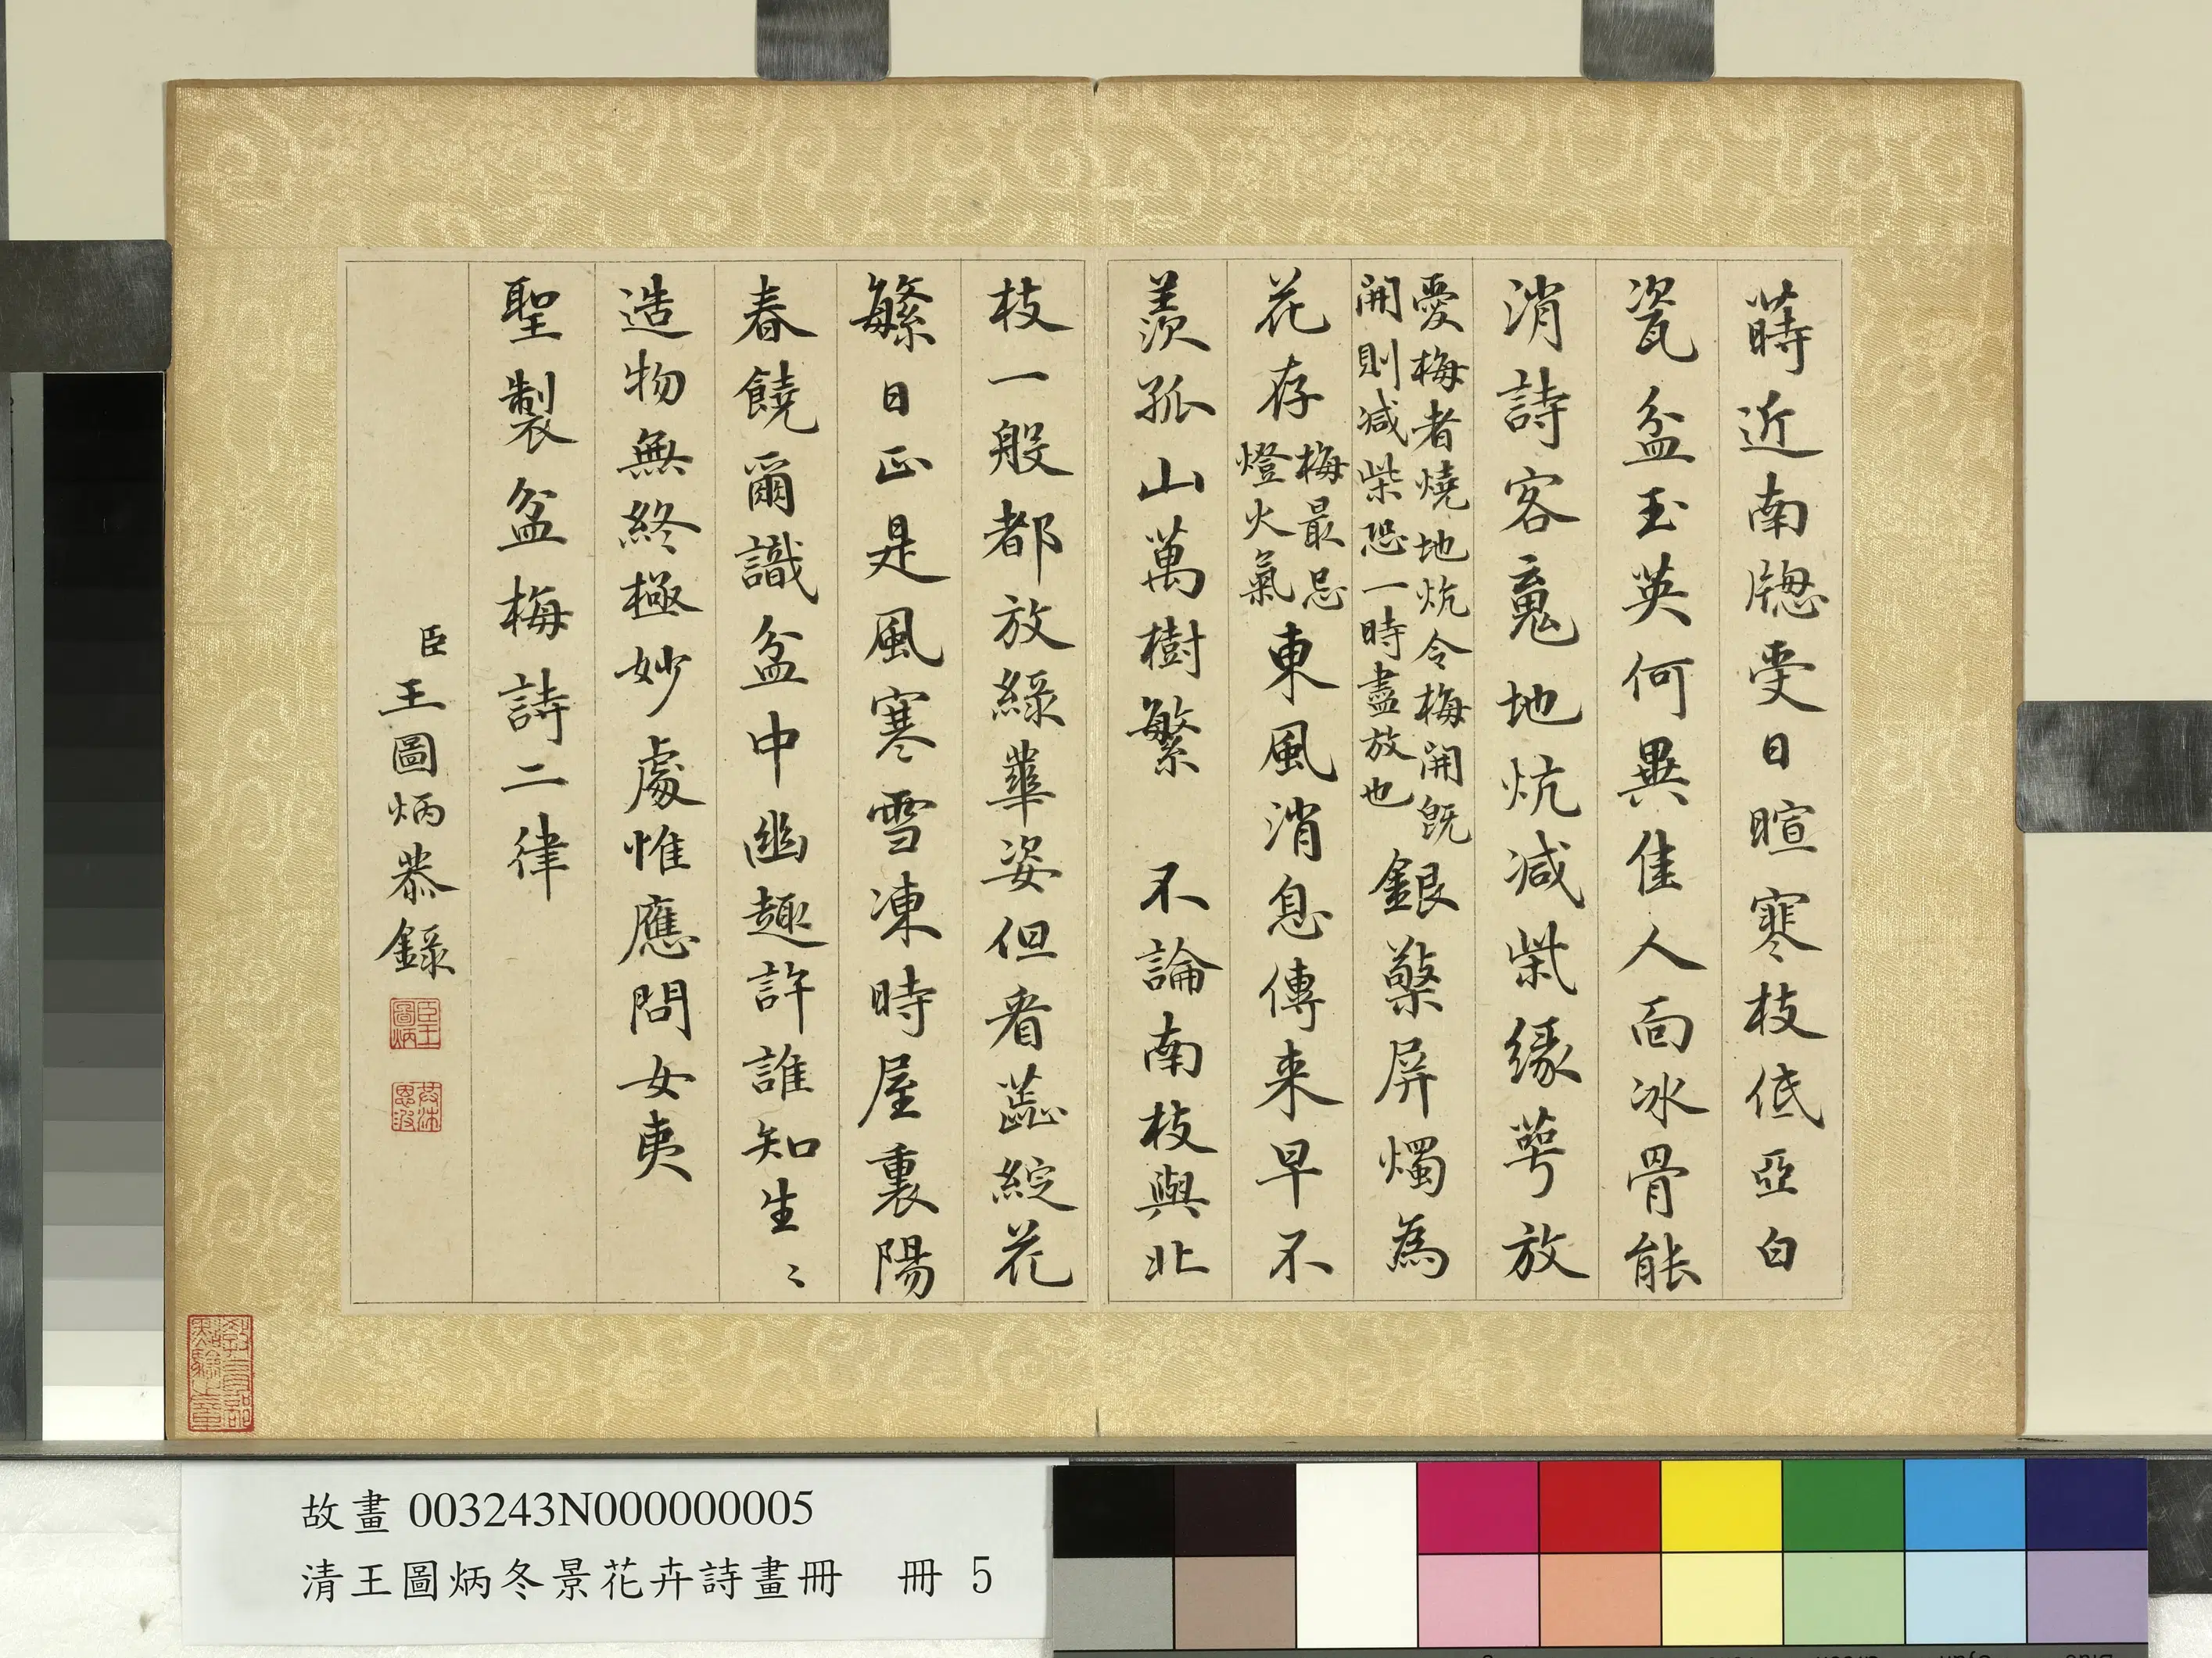 蒔近南牕受日暄寒枝低亞白
瓷盆玉英何異佳人面冰骨能
消詩客䰟地炕減柴緣萼放
愛梅者燒地炕令梅開既
開則減柴恐一時盡放也
銀檠屏燭為
花存
梅最忌
燈火氣
東風消息傳来早不
羨孤山萬樹繁 不論南枝與北
枝一般都放綠華姿但看蕊綻花
繁日正是風寒雪凍時屋裏陽
春饒爾識盆中幽趣許誰知生〻
造物無終極妙處惟應問女夷
聖製盆梅詩二律
臣王圖炳恭錄
臣王圖炳
教育部點驗之章
故畫 003243N000000005
清王圖炳冬景花卉詩畫冊 冊 5